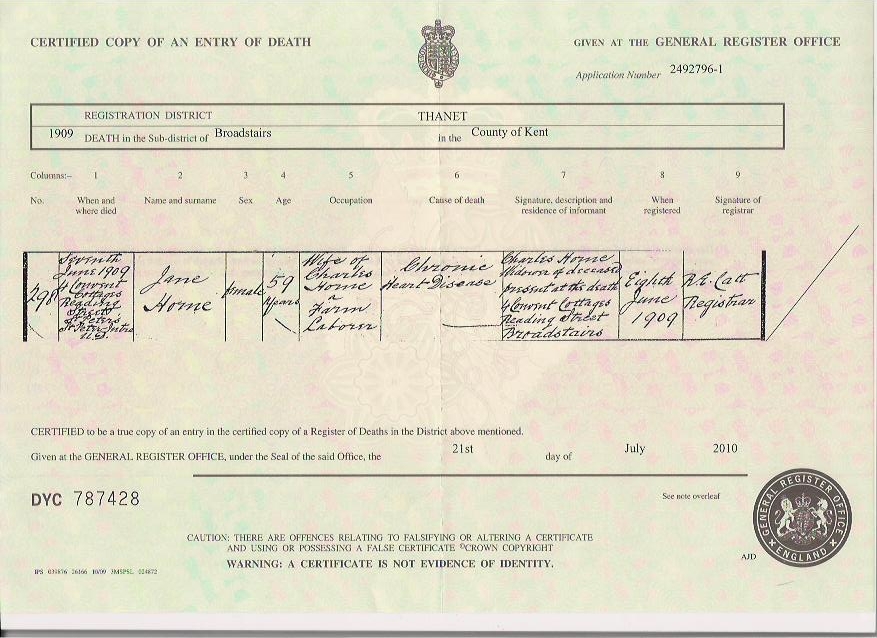 CERTIFIED COPY OF AN ENTRY OF DEATH
GIVEN AT THE GENERAL REGISTER OFFICE
Application Number 2492796-1
REGISTRATION DISTRICT THANET
1909 DEATH in the Sub-district of Broadstairs in the County of Kent
Columns:- 1 2 3 4 5 6 7 8 9
No. When and where died Name and surname Sex Age Occupation Cause of death Signature, description and residence of informant When registered Signature of registrar
298
Seventh
June 1909
4 Convent
Cottages
Reading
Street
St Peter's
U.D.
Jane
Horne
female
59
Years
Wife of
Charles
Horne
a
Farm
Laborer
Chronic
Heart Disease
Charles Horne
Widower of deceased
present at the death
4 Convent Cottages
Reading Street
Broadstairs
Eighth
June
1909
R.E. Catt
Registrar
CERTIFIED to be a true copy of an entry in the certified copy of a Register of Deaths in the District above mentioned.
Given at the GENERAL REGISTER OFFICE, under the Seal of the said Office, the 21st day of July 2010
DYC 787428
See note overleaf
CAUTION: THERE ARE OFFENCES RELATING TO FALSIFYING OR ALTERING A CERTIFICATE
AND USING OR POSSESSING A FALSE CERTIFICATE ©CROWN COPYRIGHT
WARNING: A CERTIFICATE IS NOT EVIDENCE OF IDENTITY.
GENERAL REGISTER OFFICE
ENGLAND
AJD
IPS 039876 26166 10/09 3MSPSL 024872